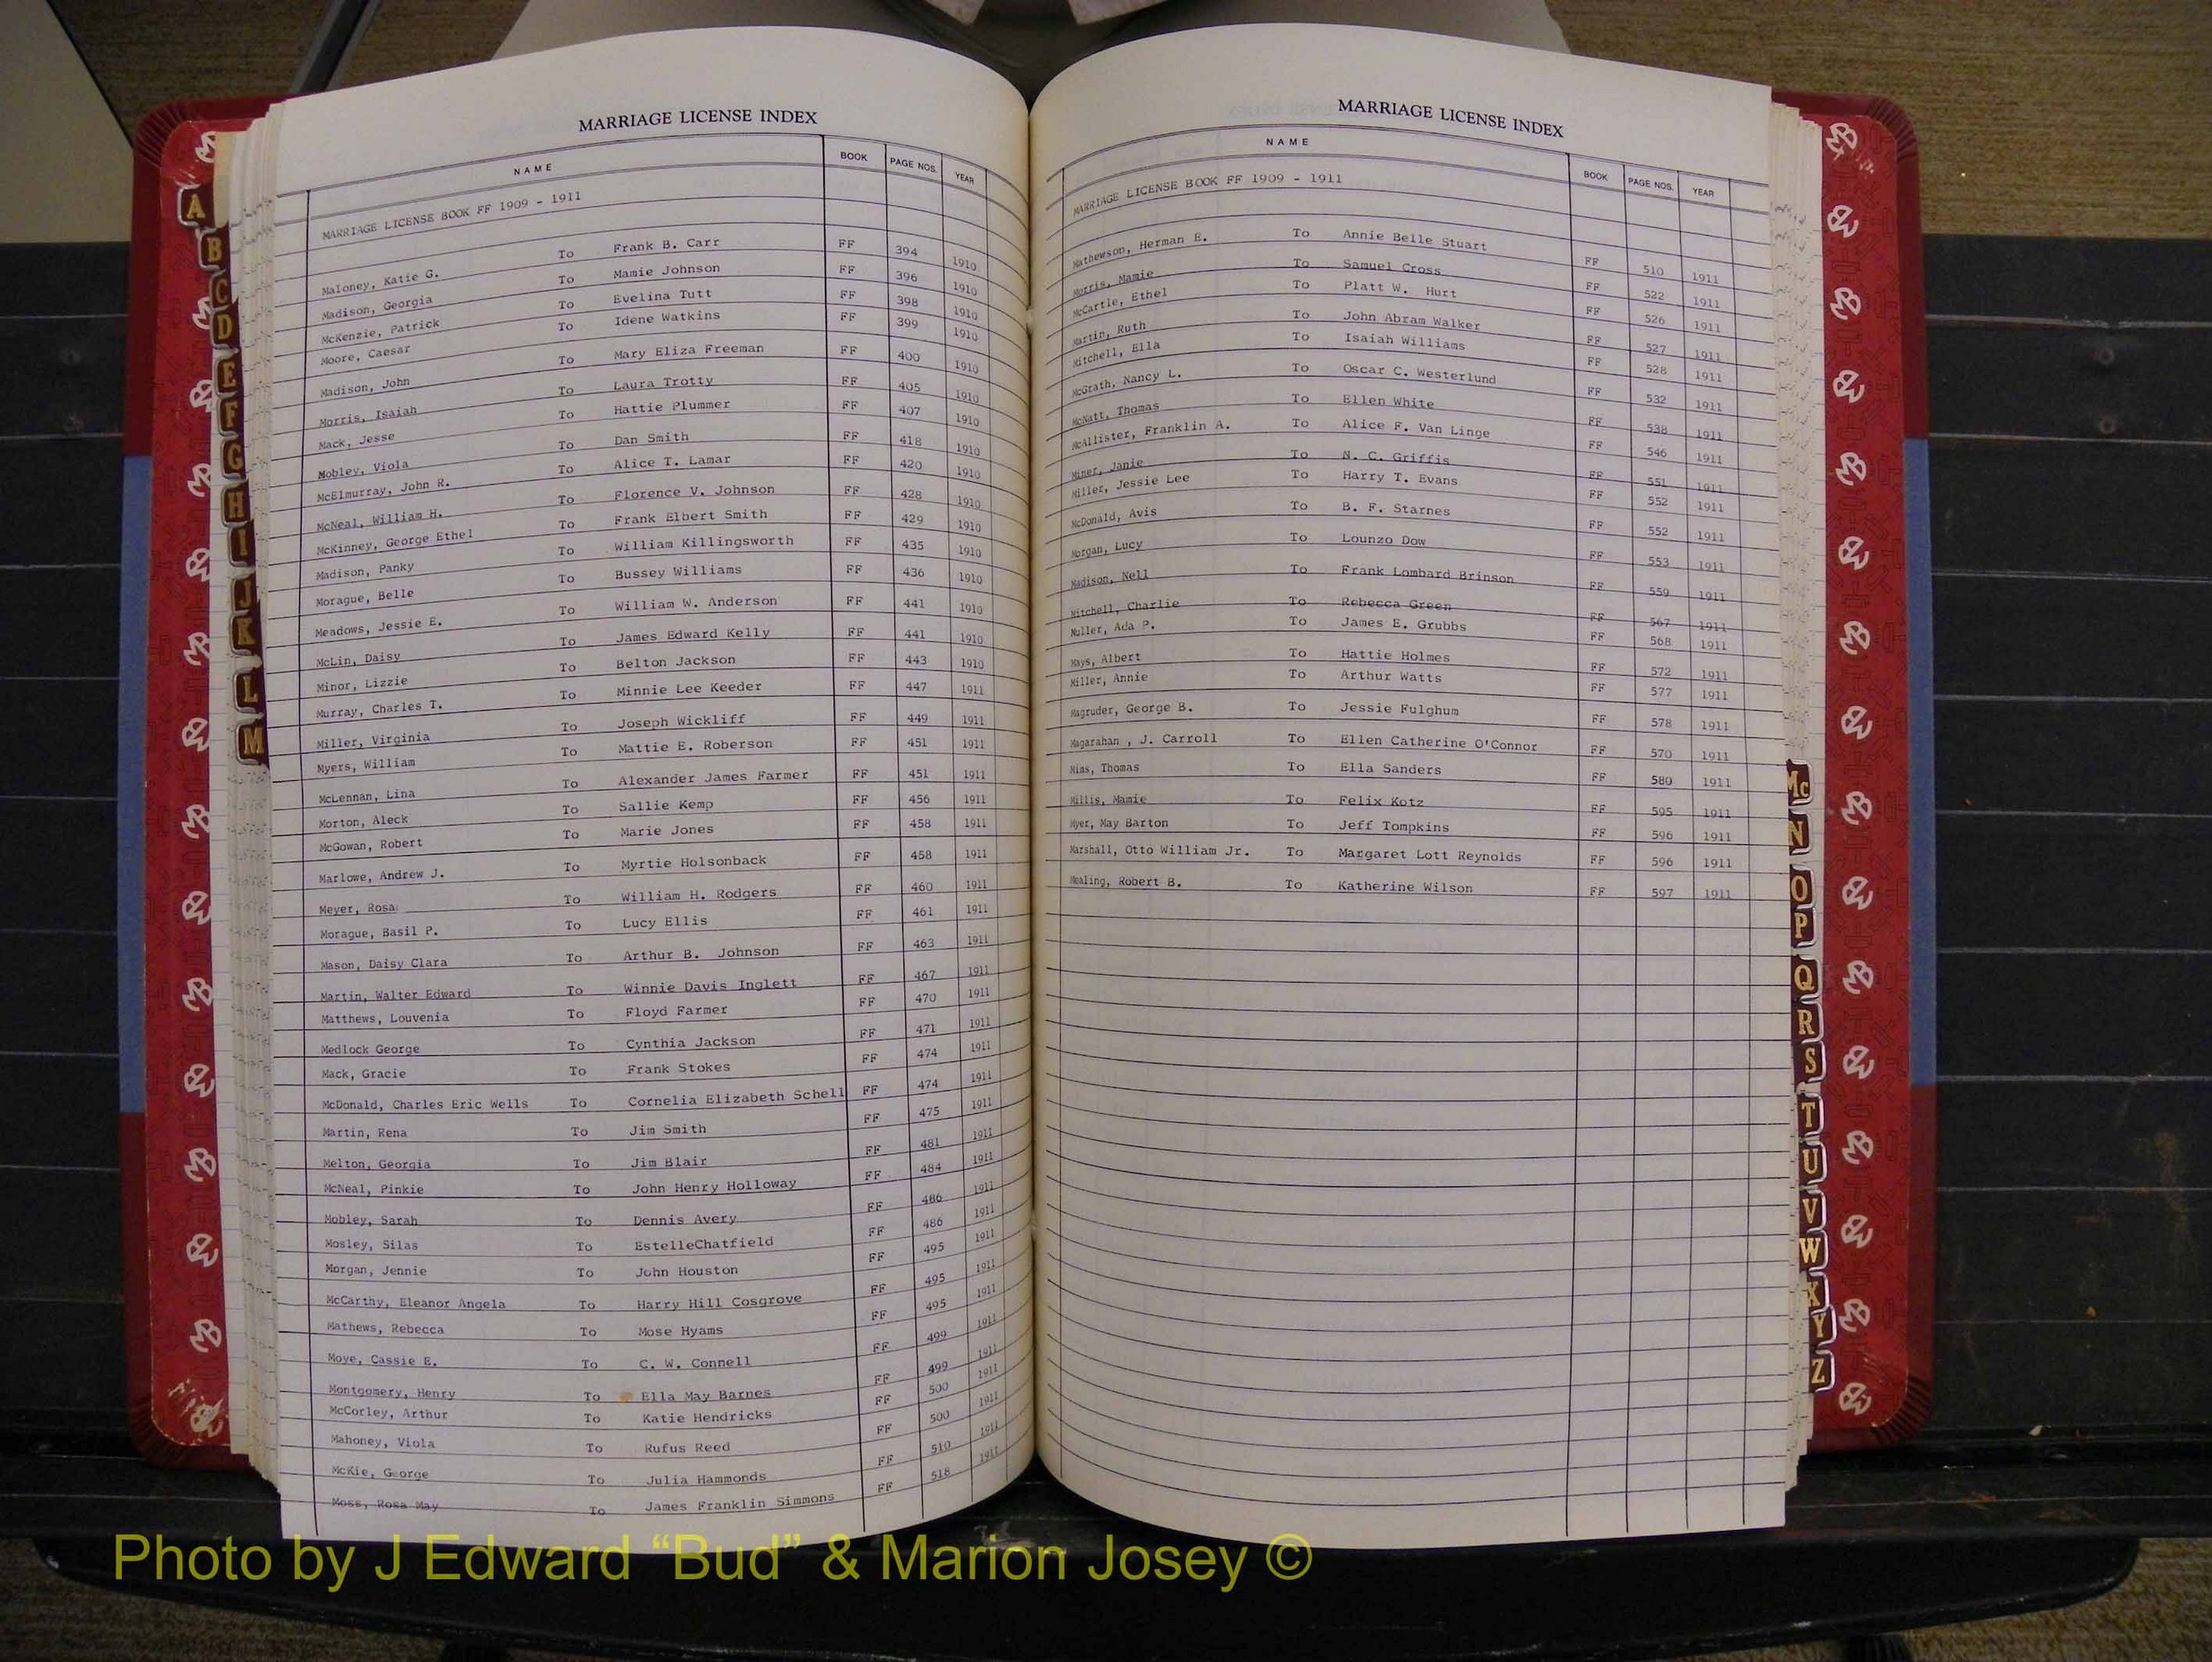 MARRIAGE LICENSE INDEX
NAME BOOK PAGE NOS. YEAR
MARRIAGE LICENSE BOOK FF 1909 - 1911
Maloney, Katie G. To Frank B. Carr FF 394 1910
Madison, Georgia To Mamie Johnson FF 396 1910
McKenzie, Patrick To Evelina Tutt FF 398 1910
Moore, Caesar To Idene Watkins FF 399 1910
Madison, John To Mary Eliza Freeman FF 400 1910
Morris, Isaiah To Laura Trotty FF 405 1910
Mack, Jesse To Hattie Plummer FF 407 1910
Mobley, Viola To Dan Smith FF 418 1910
McElmurray, John R. To Alice T. Lamar FF 420 1910
McNeal, William H. To Florence V. Johnson FF 428 1910
McKinney, George Ethel To Frank Elbert Smith FF 429 1910
Madison, Panky To William Killingsworth FF 435 1910
Morague, Belle To Bussey Williams FF 436 1910
Meadows, Jessie E. To William W. Anderson FF 441 1910
McLin, Daisy To James Edward Kelly FF 441 1910
Minor, Lizzie To Belton Jackson FF 443 1910
Murray, Charles T. To Minnie Lee Keeder FF 447 1911
Miller, Virginia To Joseph Wickliff FF 449 1911
Myers, William To Mattie E. Roberson FF 451 1911
McLennan, Lina To Alexander James Farmer FF 451 1911
Morton, Aleck To Sallie Kemp FF 456 1911
McGowan, Robert To Marie Jones FF 458 1911
Marlowe, Andrew J. To Myrtie Holsonback FF 458 1911
Meyer, Rosa To William H. Rodgers FF 460 1911
Morague, Basil P. To Lucy Ellis FF 461 1911
Mason, Daisy Clara To Arthur B. Johnson FF 463 1911
Martin, Walter Edward To Winnie Davis Inglett FF 467 1911
Matthews, Louvenia To Floyd Farmer FF 470 1911
Medlock George To Cynthia Jackson FF 471 1911
Mack, Gracie To Frank Stokes FF 474 1911
McDonald, Charles Eric Wells To Cornelia Elizabeth Schell FF 474 1911
Martin, Rena To Jim Smith FF 475 1911
Melton, Georgia To Jim Blair FF 481 1911
McNeal, Pinkie To John Henry Holloway FF 484 1911
Mobley, Sarah To Dennis Avery FF 486 1911
Mosley, Silas To EstelleChatfield FF 486 1911
Morgan, Jennie To John Houston FF 495 1911
McCarthy, Eleanor Angela To Harry Hill Cosgrove FF 495 1911
Mathews, Rebecca To Mose Hyams FF 495 1911
Moye, Cassie E. To C. W. Connell FF 499 1911
Montgomery, Henry To Ella May Barnes FF 499 1911
McCorley, Arthur To Katie Hendricks FF 500 1911
Mahoney, Viola To Rufus Reed FF 500 1911
McKie, George To Julia Hammonds FF 510 1911
Moss, Rosa May To James Franklin Simmons FF 518 1911
MARRIAGE LICENSE INDEX
NAME BOOK PAGE NOS. YEAR
MARRIAGE LICENSE BOOK FF 1909 - 1911
Mathewson, Herman E. To Annie Belle Stuart FF 510 1911
Morris, Mamie To Samuel Cross FF 522 1911
McCartle, Ethel To Platt W. Hurt FF 526 1911
Martin, Ruth To John Abram Walker FF 527 1911
Mitchell, Ella To Isaiah Williams FF 528 1911
McGrath, Nancy L. To Oscar C. Westerlund FF 532 1911
McNatt, Thomas To Ellen White FF 538 1911
McAllister, Franklin A. To Alice F. Van Linge FF 546 1911
Miner, Janie To N. C. Griffis FF 551 1911
Miller, Jessie Lee To Harry T. Evans FF 552 1911
McDonald, Avis To B. F. Starnes FF 552 1911
Morgan, Lucy To Lounzo Dow FF 553 1911
Madison, Nell To Frank Lombard Brinson FF 559 1911
Mitchell, Charlie To Rebecca Green FF 567 1911
Muller, Ada P. To James E. Grubbs FF 568 1911
Mays, Albert To Hattie Holmes FF 572 1911
Miller, Annie To Arthur Watts FF 577 1911
Magruder, George B. To Jessie Fulghum FF 578 1911
Magarahan , J. Carroll To Ellen Catherine O'Connor FF 570 1911
Mims, Thomas To Ella Sanders FF 580 1911
Millis, Mamie To Felix Kotz FF 595 1911
Myer, May Barton To Jeff Tompkins FF 596 1911
Marshall, Otto William Jr. To Margaret Lott Reynolds FF 596 1911
Mealing, Robert B. To Katherine Wilson FF 597 1911
A
B
C
D
E
F
G
H
I
J
K
L
M
Mc
N
O
P
Q
R
S
T
U
V
W
X
Y
Z
Photo by J Edward “Bud” & Marion Josey ©